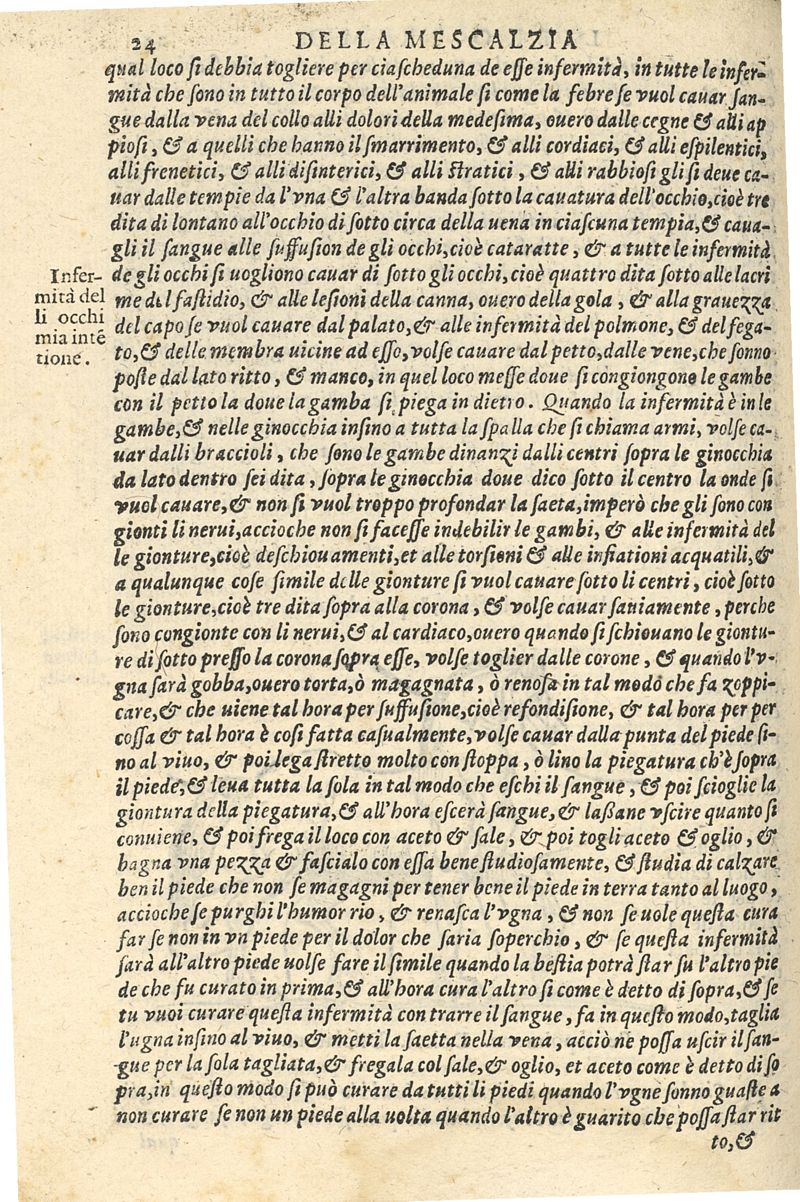 24 DELLA MESCALZIA
qual loco si debbia togliere per ciascheduna de esse infermità, in tutte le infer-
mità che sono in tutto il corpo dell'animale si come la febre se vuol cauar san-
gue dalla vena del collo alli dolori della medesima, ouero dalle cegne & alli ap
piosi, & a quelli che hanno il smarrimento, & alli cordiaci, & alli espilentici,
alli frenetici, & alli disinterici, & alli stratici, & alli rabbiosi gli si deue ca-
uar dalle tempie da l'vna & l'altra banda sotto la cauatura dell'occhio, cioè tre
dita di lontano all'occhio di sotto circa della uena in ciascuna tempia, & caua-
gli il sangue alle suffusion de gli occhi, cioè cataratte, & a tutte le infermità
de gli occhi si uogliono cauar di sotto gli occhi, cioè quattro dita sotto alle lacri
me del fastidio, & alle lesioni della canna, ouero della gola, & alla grauezza
del capo se vuol cauare dal palato, & alle infermità del polmone, & del fega-
to, & delle membra uicine ad esso, volse cauare dal petto, dalle vene, che sonno
poste dal lato ritto, & manco, in quel loco messe doue si congiongono le gambe
con il petto la doue la gamba si piega in dietro. Quando la infermità è in le
gambe, & nelle ginocchia insino a tutta la spalla che si chiama armi, volse ca-
uar dalli braccioli, che sono le gambe dinanzi dalli centri sopra le ginocchia
da lato dentro sei dita, sopra le ginocchia doue dico sotto il centro la onde si
vuol cauare, & non si vuol troppo profondar la saeta, imperò che gli sono con
gionti li nerui, accioche non si facesse indebilir le gambi, & alle infermità del
le gionture, cioè deschiouamenti, et alle torsioni & alle infiationi acquatili, &
a qualunque cose simile delle gionture si vuol cauare sotto li centri, cioè sotto
le gionture, cioè tre dita sopra alla corona, & volse cauar sauiamente, perche
sono congionte con li nerui, & al cardiaco, ouero quando si schiouano le giontu-
re di sotto presso la corona sopra esse, volse toglier dalle corone, & quando l'v-
gna sarà gobba, ouero torta, ò magagnata, ò renosa in tal modo che fa zoppi-
care, & che uiene tal hora per suffusione, cioè refondisione, & tal hora per per
cossa & tal hora è cosi fatta casualmente, volse cauar dalla punta del piede si-
no al viuo, & poi lega stretto molto con stoppa, ò lino la piegatura ch'è sopra
il piede, & leua tutta la sola in tal modo che eschi il sangue, & poi scioglie la
giontura della piegatura, & all'hora escerà sangue, & laßane vscire quanto si
conuiene, & poi frega il loco con aceto & sale, & poi togli aceto & oglio, &
bagna vna pezza & fascialo con essa bene studiosamente, & studia di calzare
ben il piede che non se magagni per tener bene il piede in terra tanto al luogo,
accioche se purghi l'humor rio, & renasca l'vgna, & non se uole questa cura
far se non in vn piede per il dolor che saria soperchio, & se questa infermità
sarà all'altro piede uolse fare il simile quando la bestia potrà star su l'altro pie
de che fu curato in prima, & all'hora cura l'altro si come è detto di sopra, & se
tu vuoi curare questa infermità con trarre il sangue, fa in questo modo, taglia
l'ugna insino al viuo, & metti la saetta nella vena, acciò ne possa uscir il san-
gue per la sola tagliata, & fregala col sale, & oglio, et aceto come è detto di so
pra, in questo modo si può curare da tutti li piedi quando l'vgne sonno guaste a
non curare se non un piede alla uolta quando l'altro è guarito che possa star rit
to, &
Infer-
mità del
li occhi
mia intẽ
tione.